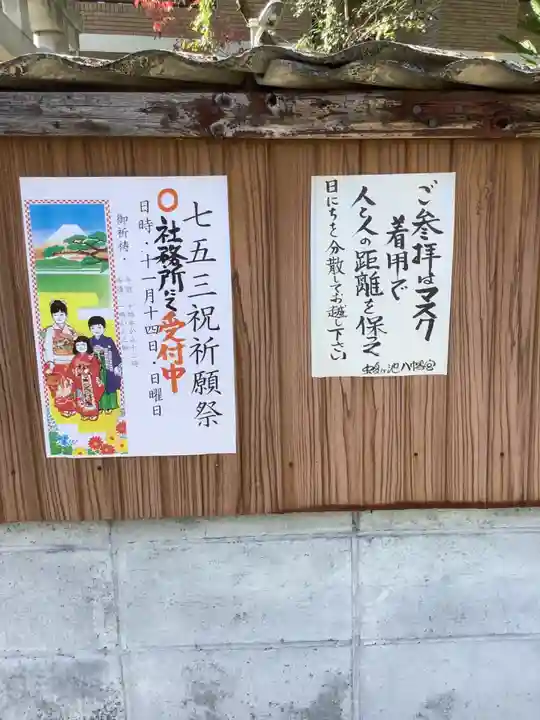 ご参拝はマスク
着用で
人と人の距離を保って
日にちを分散してお越し下さい
七五三祝祈願祭
〇社務所にて受付中
日時・十一月十四日・日曜日
御祈祷・